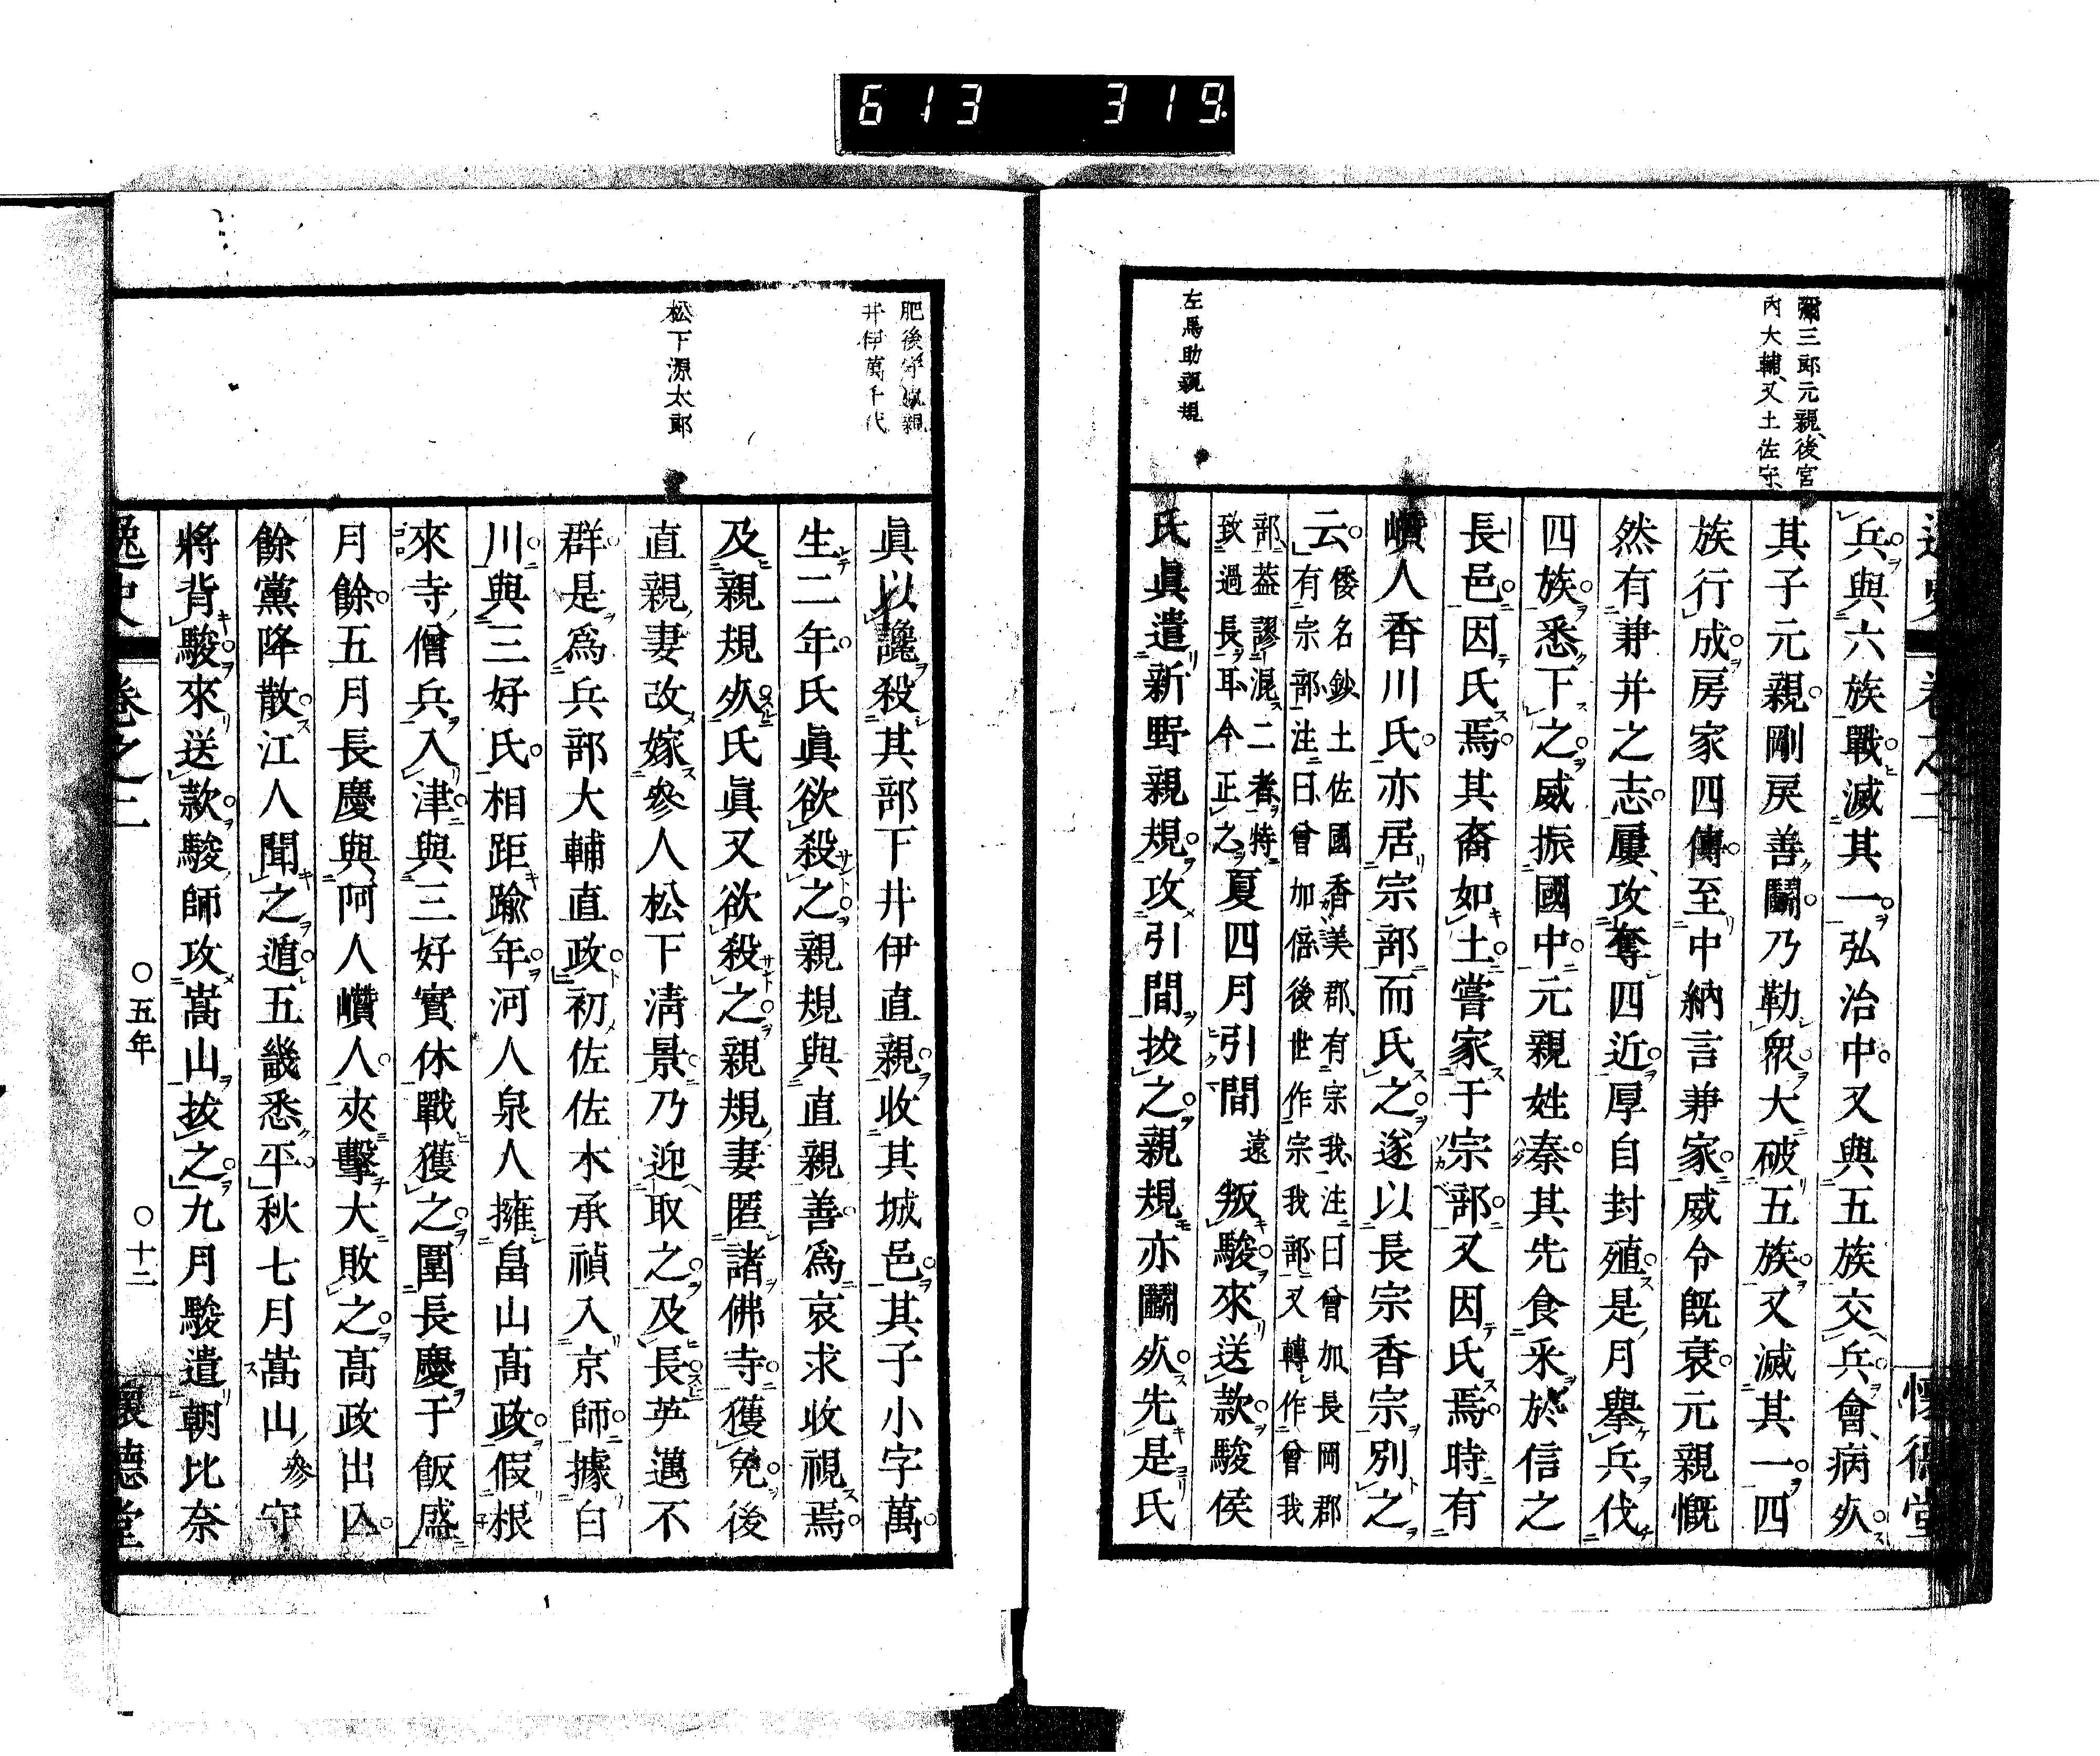 613 319
彌三郎元親、後宮
內大輔、又土佐守、
左馬助親規
逸史 卷之二 懷德堂
兵與六族戰滅其一弘治中又與五族交兵會病死
其子元親剛戾善鬭乃勒衆大破五族又滅其一四
族行成房家四傳至中納言兼家威令旣衰元親慨
然有兼并之志屢攻奪四近厚自封殖是月擧兵伐
四族悉下之威振國中元親姓秦其先食采於信之
長邑因氏焉其裔如土嘗家于宗部又因氏焉時有
巑人香川氏亦居宗部而氏之遂以長宗香宗別之
云倭名鈔土佐國香美郡有宗我注曰曾加長岡郡
有宗部注曰曾加倍後世作宗我部又轉作曾我
部葢謬混二者特
致過長耳今正之夏四月引間遠叛駿來送款駿侯
氏眞遣新野親規攻引間拔之親規亦鬭死先是氏
肥後守直親
井伊萬千代
松下源太郎
眞以讒殺其部下井伊直親收其城邑其子小字萬
生二年氏眞欲殺之親規與直親善爲哀求收視焉
及親規死氏眞又欲殺之親規妻匿諸佛寺獲免後
直親妻改嫁參人松下淸景乃迎取之及長英邁不
群是爲兵部大輔直政初佐佐木承禎入京師據白
川與三好氏相距踰年河人泉人擁畠山高政假根
來寺僧兵入津與三好實休戰獲之圍長慶于飯盛
月餘五月長慶與阿人巑人夾擊大敗之高政出亾
餘黨降散江人聞之遁五畿悉平秋七月嵩山參守
將背駿來送款駿師攻嵩山拔之九月駿遣朝比奈
逸史 卷之二 ○五年 ○十二 懷德堂